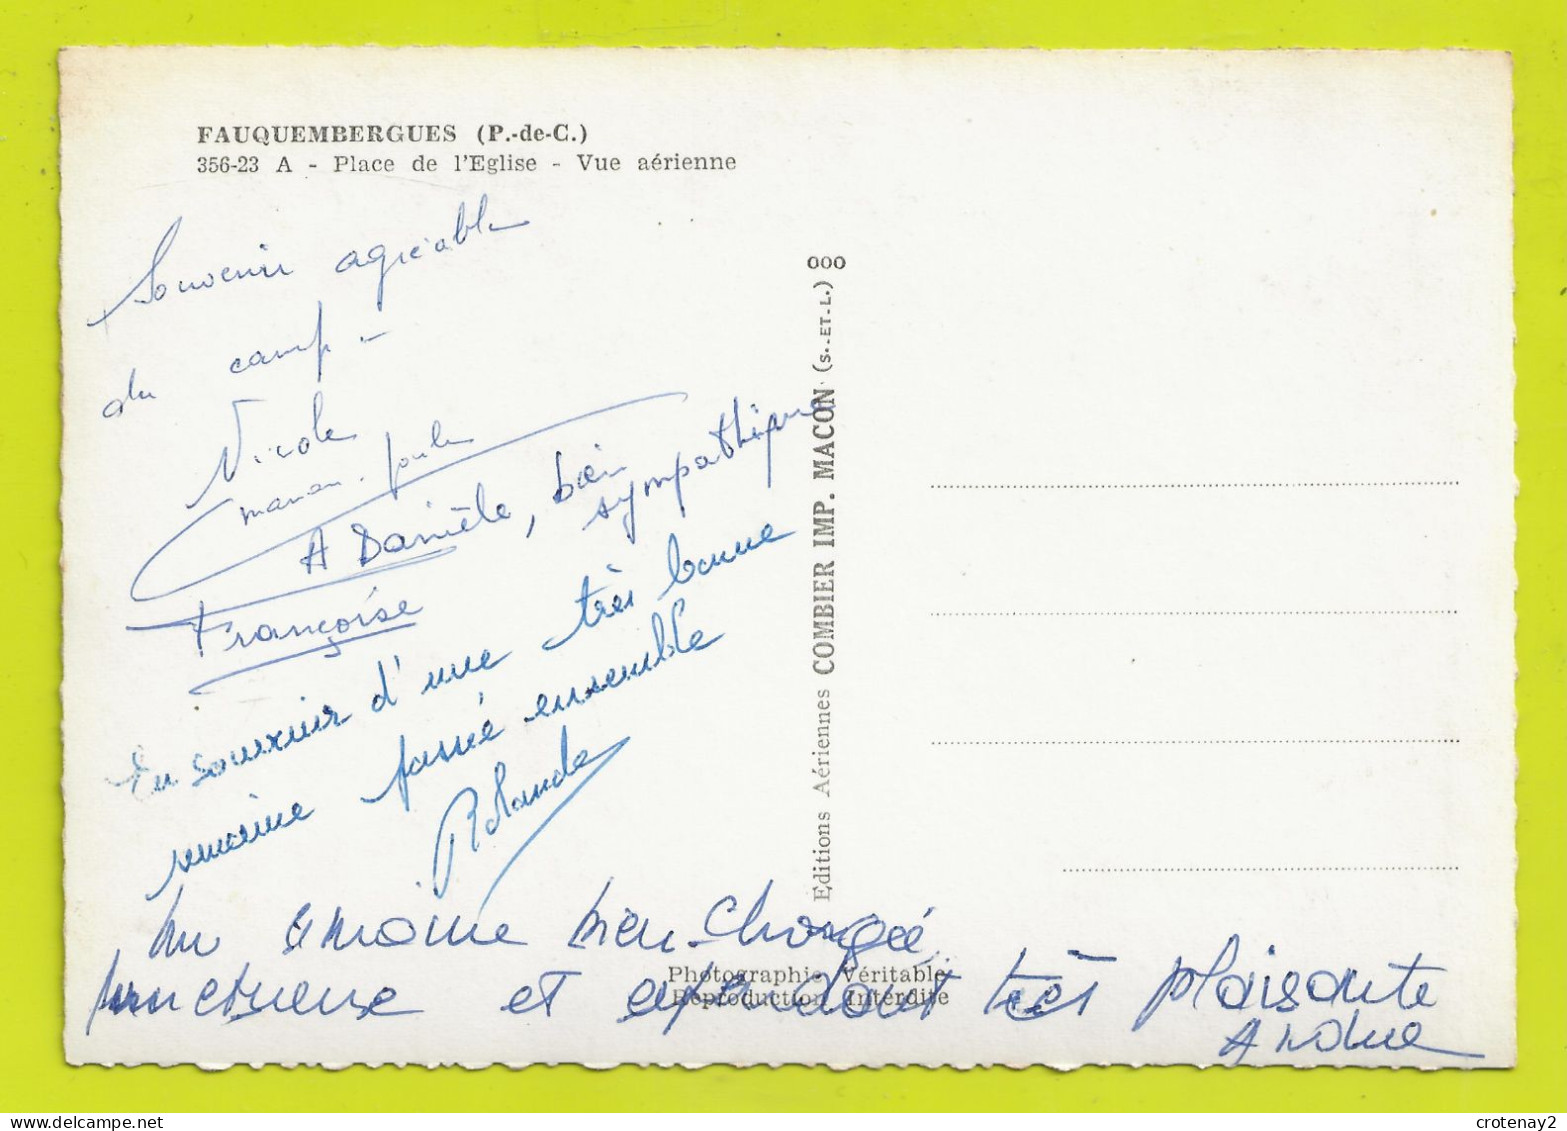 FAUQUEMBERGUES (P.-de-C.)
356-23 A - Place de l'Eglise - Vue aérienne
Souvenir agréable
du camp -
Nicole
A Danièle, bien sympathique
Françoise
En souvenir d'une très bonne
semaine passée ensemble
Rolande
semaine bien chargée,
et cependant très plaisante
Editions Aériennes COMBIER IMP. MACON (S.-ET-L.) OOO
Photographie Véritable
Reproduction Interdite
delcampe.net
crotenay2